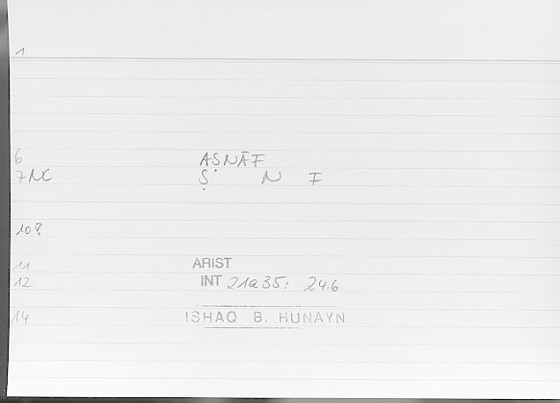 1
6 AṢNĀF
7NC Ṣ N F
108
11 ARIST
12 INT 21a35: 24.6
14 ISHAQ B. HUNAYN